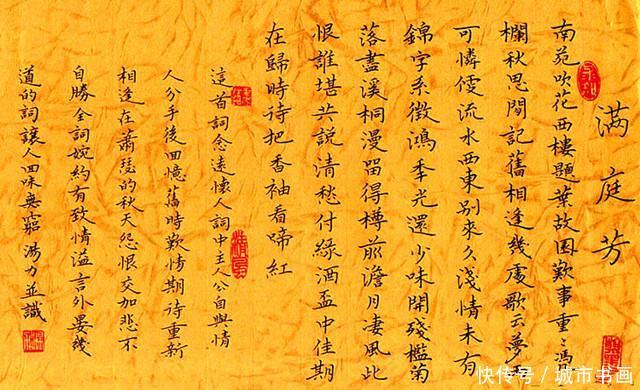 满庭芳
南苑吹花西樓題葉故园歡事重〻馮
欄秋思閒記舊相逢幾處歌云夢
可憐便流水西東別來久淺情未有
錦字系徵鴻季光還少味開殘檻菊
落盡溪桐漫留得樽前澹月凄風此
恨誰堪共説清愁付綠酒盃中佳期
在歸時待把香袖看啼紅
這首詞念遠懷人詞中主人公自與情
人分手後回憶舊時歡情期待重新
相逢在蕭瑟的秋天怨恨交加悲不
自勝全詞婉約有致情溢言外署幾
道的詞讓人回味無窮湯力並識
快传号/城市书画